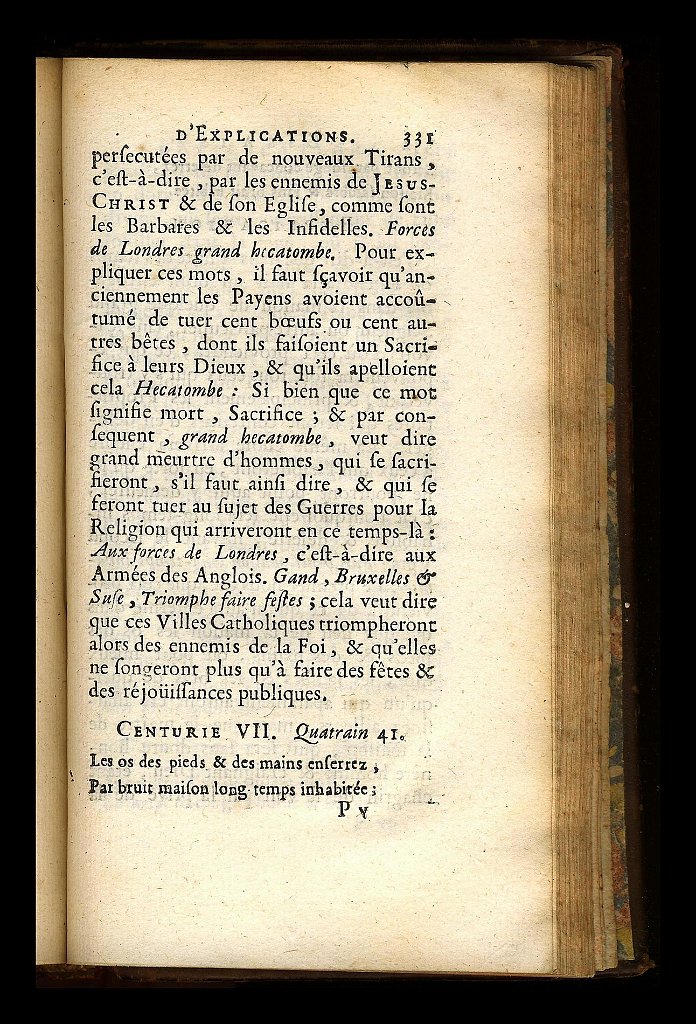 D'EXPLICATIONS. 331
perſecutées par de nouveaux Tirans,
c'eſt-à-dire, par les ennemis de JESUS-
CHRIST & de ſon Egliſe, comme ſont
les Barbares & les Infidelles. Forces
de Londres grand hecatombe. Pour ex-
pliquer ces mots, il faut ſçavoir qu'an-
ciennement les Payens avoient accoû-
tumé de tuer cent bœufs ou cent au-
tres bêtes, dont ils faiſoient un Sacri-
fice à leurs Dieux, & qu'ils apelloient
cela Hecatombe : Si bien que ce mot
ſignifie mort, Sacrifice ; & par con-
ſequent, grand hecatombe, veut dire
grand meurtre d'hommes, qui ſe ſacri-
fieront, s'il faut ainſi dire, & qui ſe
feront tuer au ſujet des Guerres pour la
Religion qui arriveront en ce temps-là :
Aux forces de Londres, c'eſt-à-dire aux
Armées des Anglois. Gand, Bruxelles &
Suſe, Triomphe faire feſtes ; cela veut dire
que ces Villes Catholiques triompheront
alors des ennemis de la Foi, & qu'elles
ne ſongeront plus qu'à faire des fêtes &
des réjoüiſſances publiques.
CENTURIE VII. Quatrain 41.
Les os des pieds & des mains enſerrez,
Par bruit maiſon long temps inhabitée ;
P v